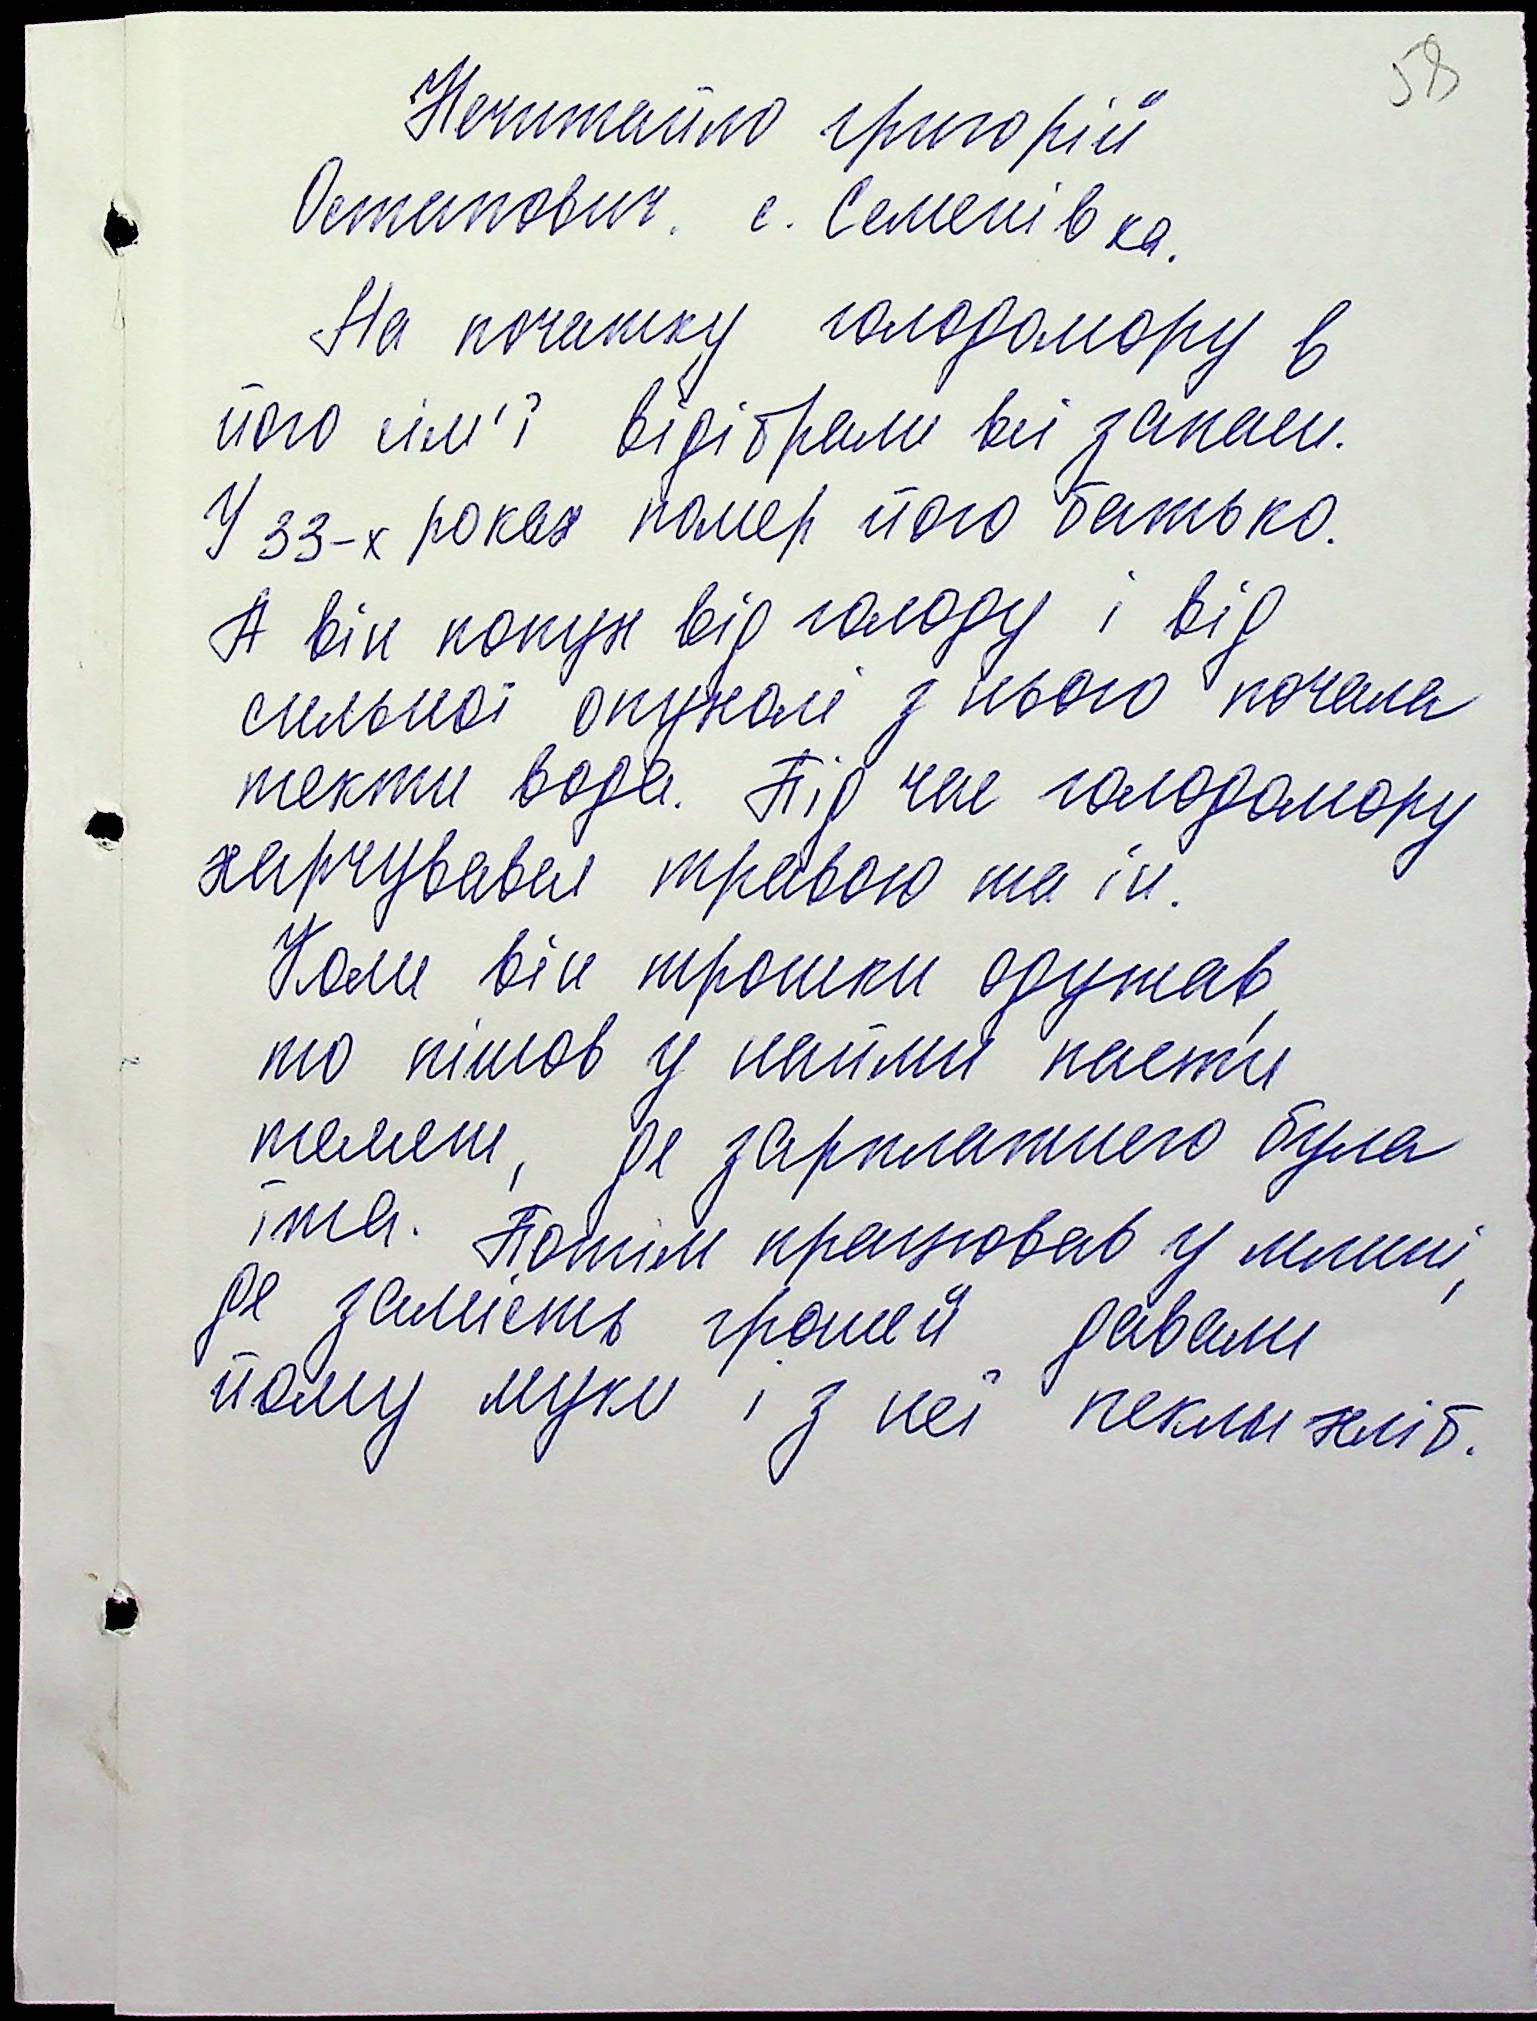 58
Нечитайло григорій
Остапович. с. Семенівка.
На початку голодомору в
його сім'ї відібрали всі запаси.
У 33-х роках помер його батько.
А він попух від голоду і від
сильної опухолі з нього почала
текти вода. Під час голодомору
харчувався травою та ін.
Коли він трошки одужав,
то пішов у найми пасти
телят, де зарплатнею була
їжа. Потім працював у млині,
де замість грошей давали
йому муки і з неї пекли хліб.